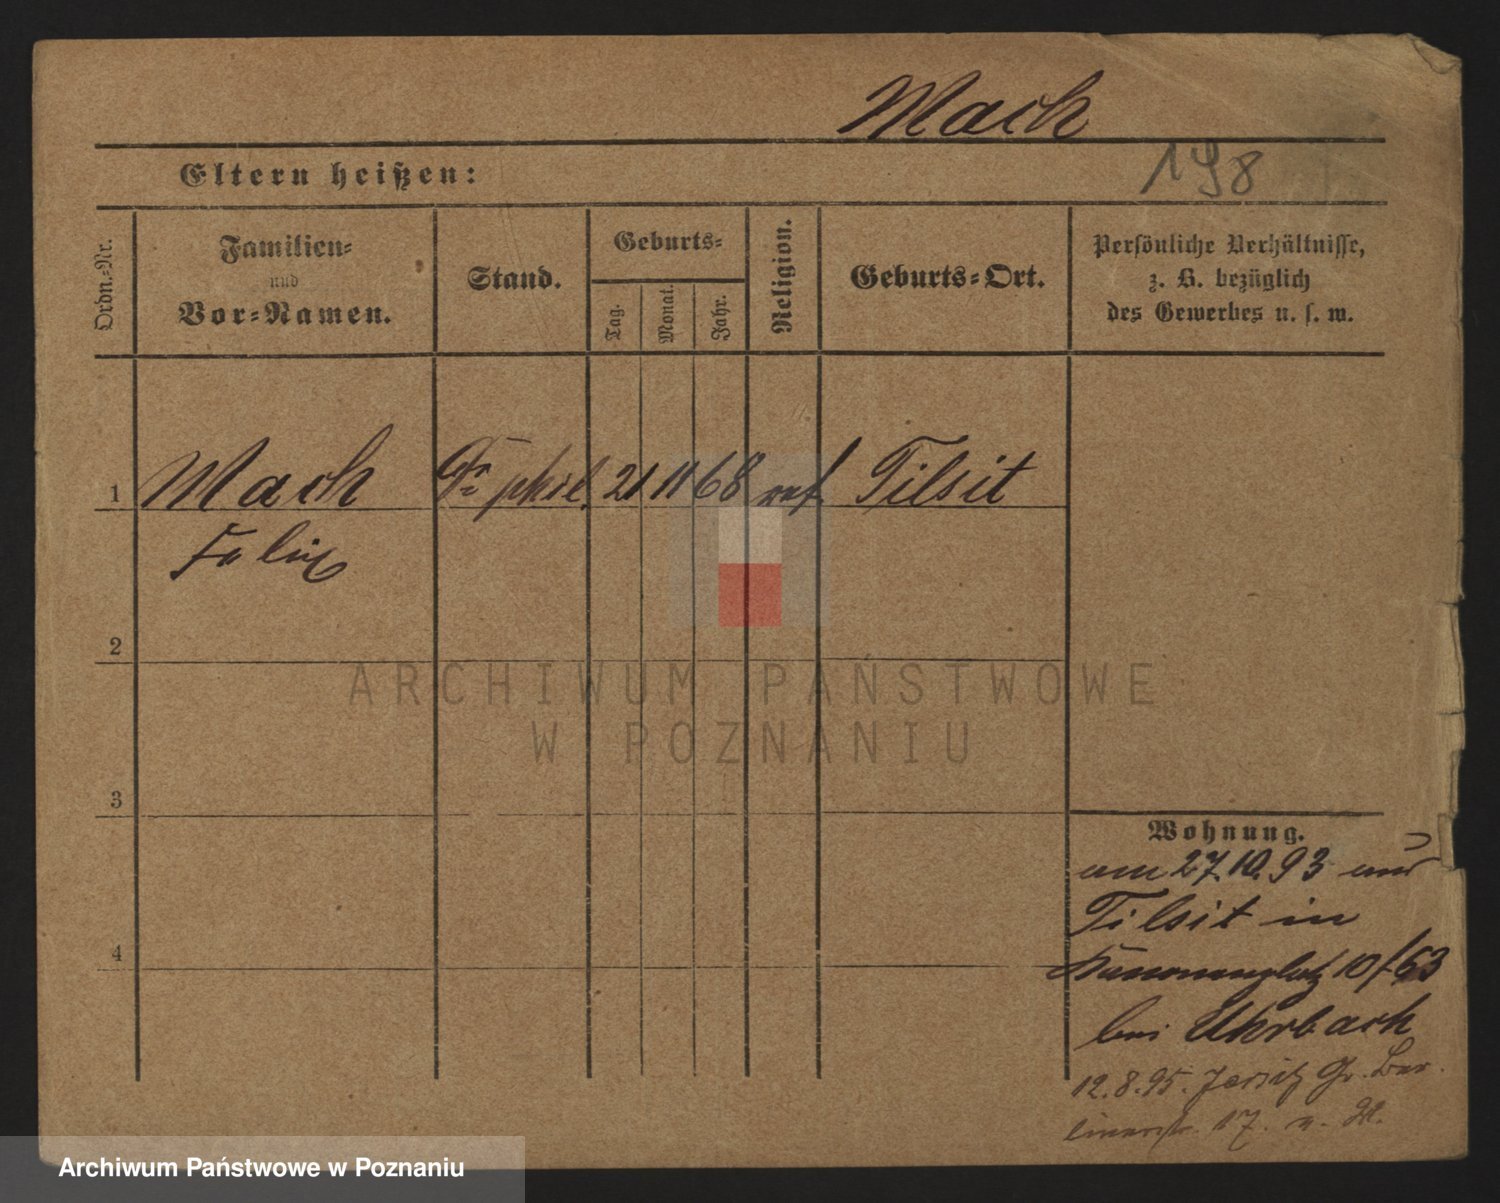 Mach
198
Eltern heißen:
Ordn.-Nr.
Familien-
und
Vor-Namen.
Stand.
Geburts-
Tag.
Monat.
Jahr.
Religion.
Geburts-Ort.
Persönliche Verhältnisse,
z. B. bezüglich
des Gewerbes u. s. w.
1 Mach Dr phil. 21 11 68 ref. Tilsit
Felix
2
3
4
Wohnung.
am 27.10.93 aus
Tilsit in
Kanonenplatz 10/
bei Uhrbach
12.8.95. Jersitz Gr. Ber
linerstr. 17.
ARCHIWUM PAŃSTWOWE
W POZNANIU
Archiwum Państwowe w Poznaniu